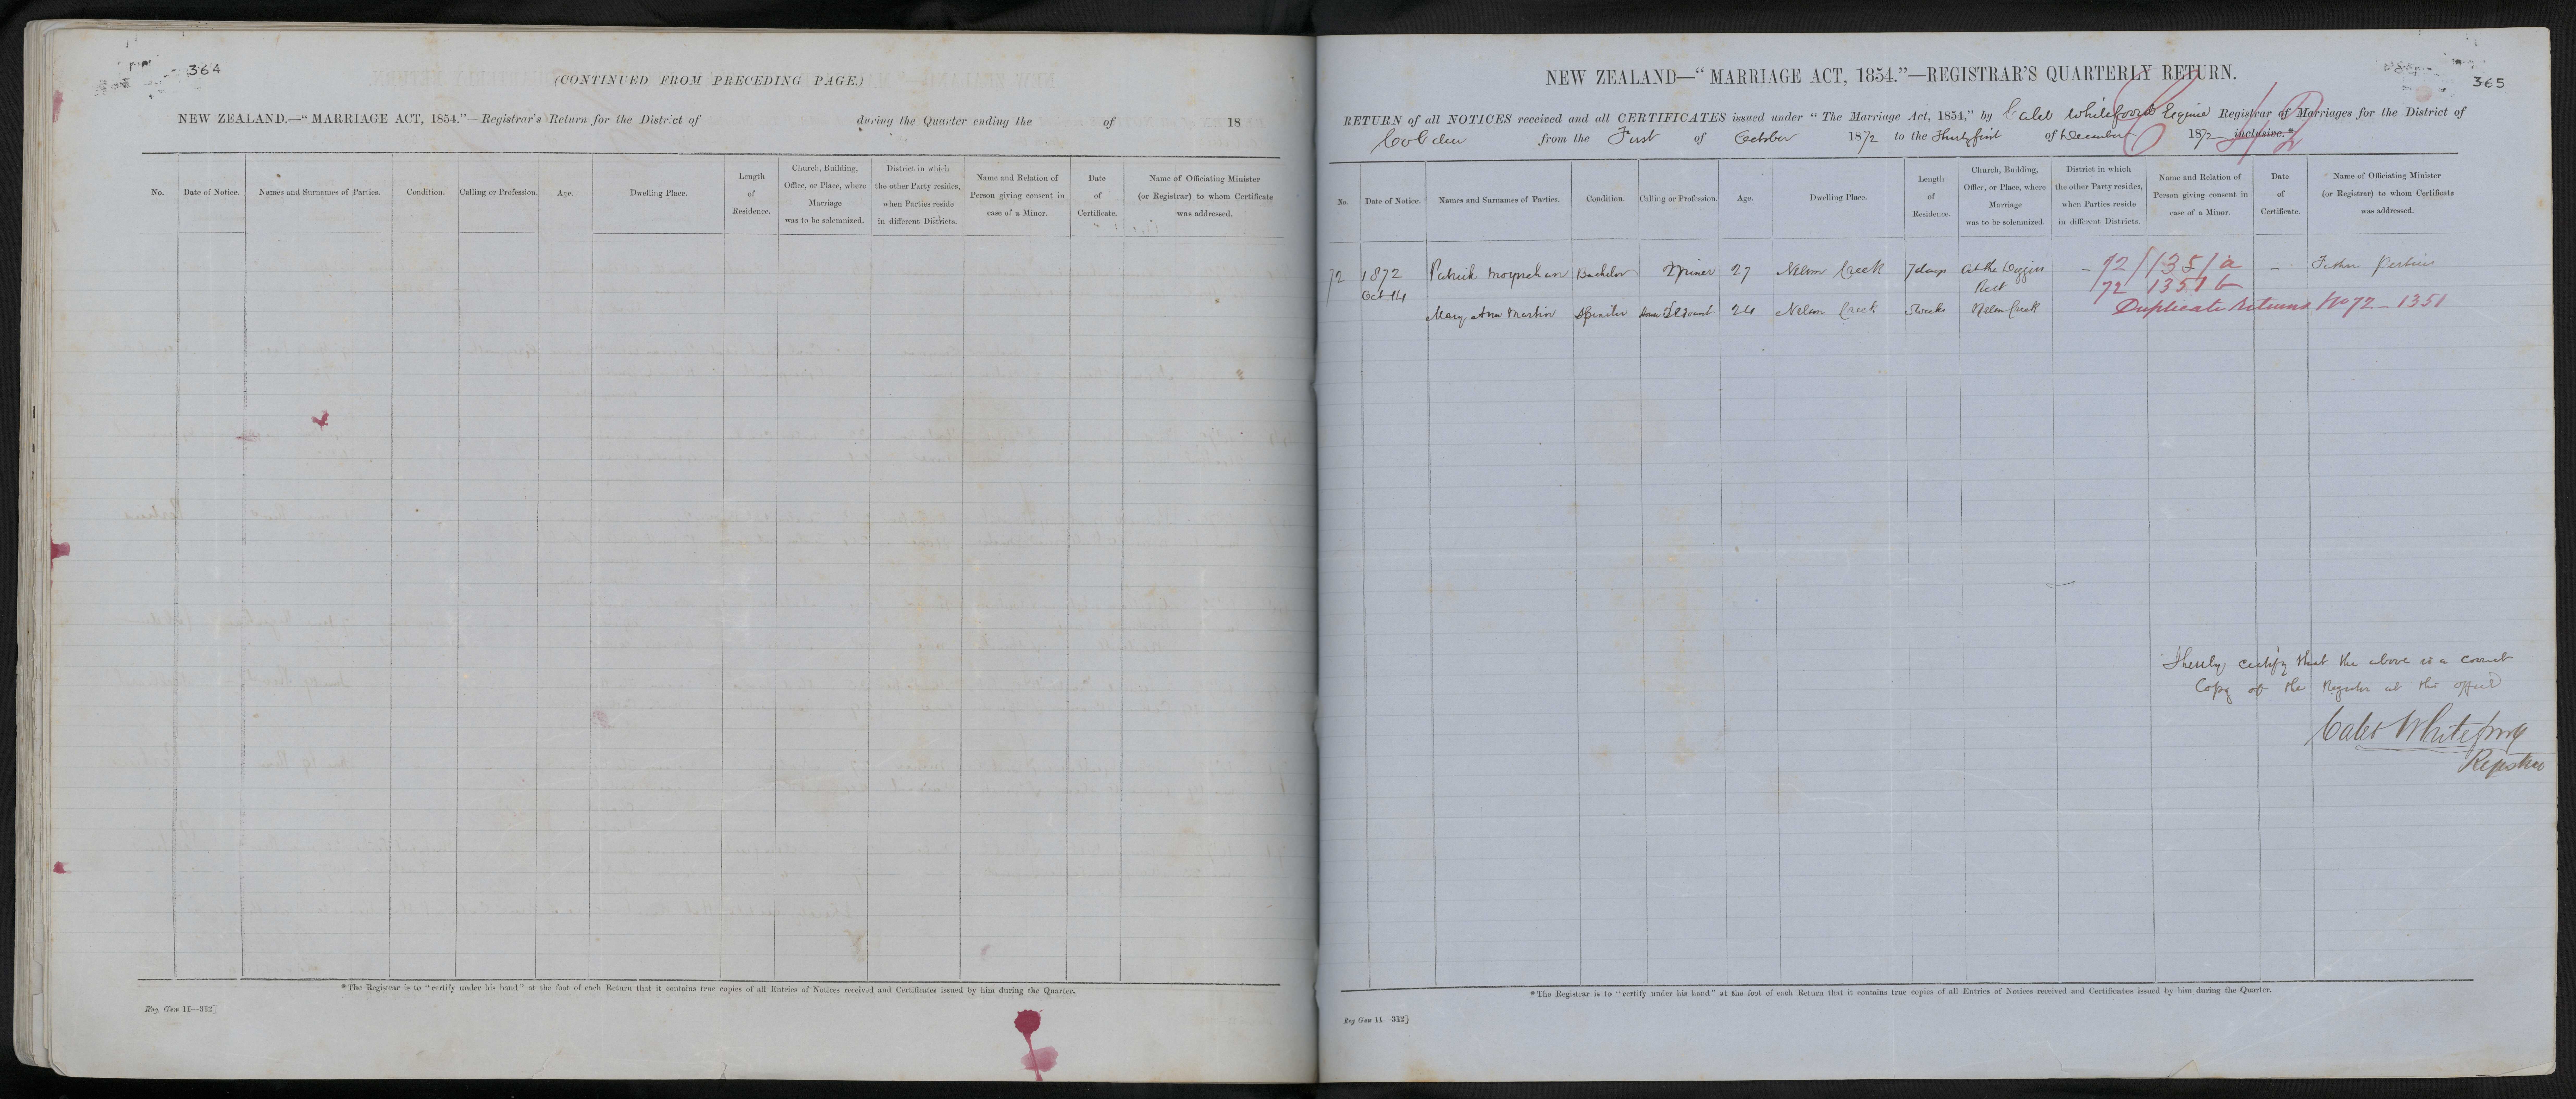 364
(CONTINUED FROM PRECEDING PAGE.)
NEW ZEALAND.—"MARRIAGE ACT, 1854."—Registrar's Return for the District of during the Quarter ending the of 18
No. Date of Notice. Names and Surnames of Parties. Condition. Calling or Profession. Age. Dwelling Place. Length of Residence. Church, Building, Office, or Place, where Marriage was to be solemnized. District in which the other Party resides, when Parties reside in different Districts. Name and Relation of Person giving consent in case of a Minor. Date of Certificate. Name of Officiating Minister (or Registrar) to whom Certificate was addressed.
*The Registrar is to "certify under his hand" at the foot of each Return that it contains true copies of all Entries of Notices received and Certificates issued by him during the Quarter.
Reg Gen 11—312]
365
NEW ZEALAND—"MARRIAGE ACT, 1854."—REGISTRAR'S QUARTERLY RETURN.
RETURN of all NOTICES received and all CERTIFICATES issued under "The Marriage Act, 1854," by Caleb Whitefoord Esquire Registrar of Marriages for the District of
Cobden from the First of October 1872 to the Thirtyfirst of December 1872 inclusive.*
No. Date of Notice. Names and Surnames of Parties. Condition. Calling or Profession. Age. Dwelling Place. Length of Residence. Church, Building, Office, or Place, where Marriage was to be solemnized. District in which the other Party resides, when Parties reside in different Districts. Name and Relation of Person giving consent in case of a Minor. Date of Certificate. Name of Officiating Minister (or Registrar) to whom Certificate was addressed.
72 1872 Patrick Moynehan Bachelor Miner 27 Nelson Creek 7 days At the Diggins - 72/1351a - Father
Oct 14 72 1351b
Mary Ann Martin Spinster Servant 24 Nelson Creek weeks Nelson Creek Duplicate returns No 72 - 1351
I hereby certify that the above is a correct
Copy of the Register at this office
Caleb Whitefoord
Registrar
*The Registrar is to "certify under his hand" at the foot of each Return that it contains true copies of all Entries of Notices received and Certificates issued by him during the Quarter.
Reg Gen 11—312]